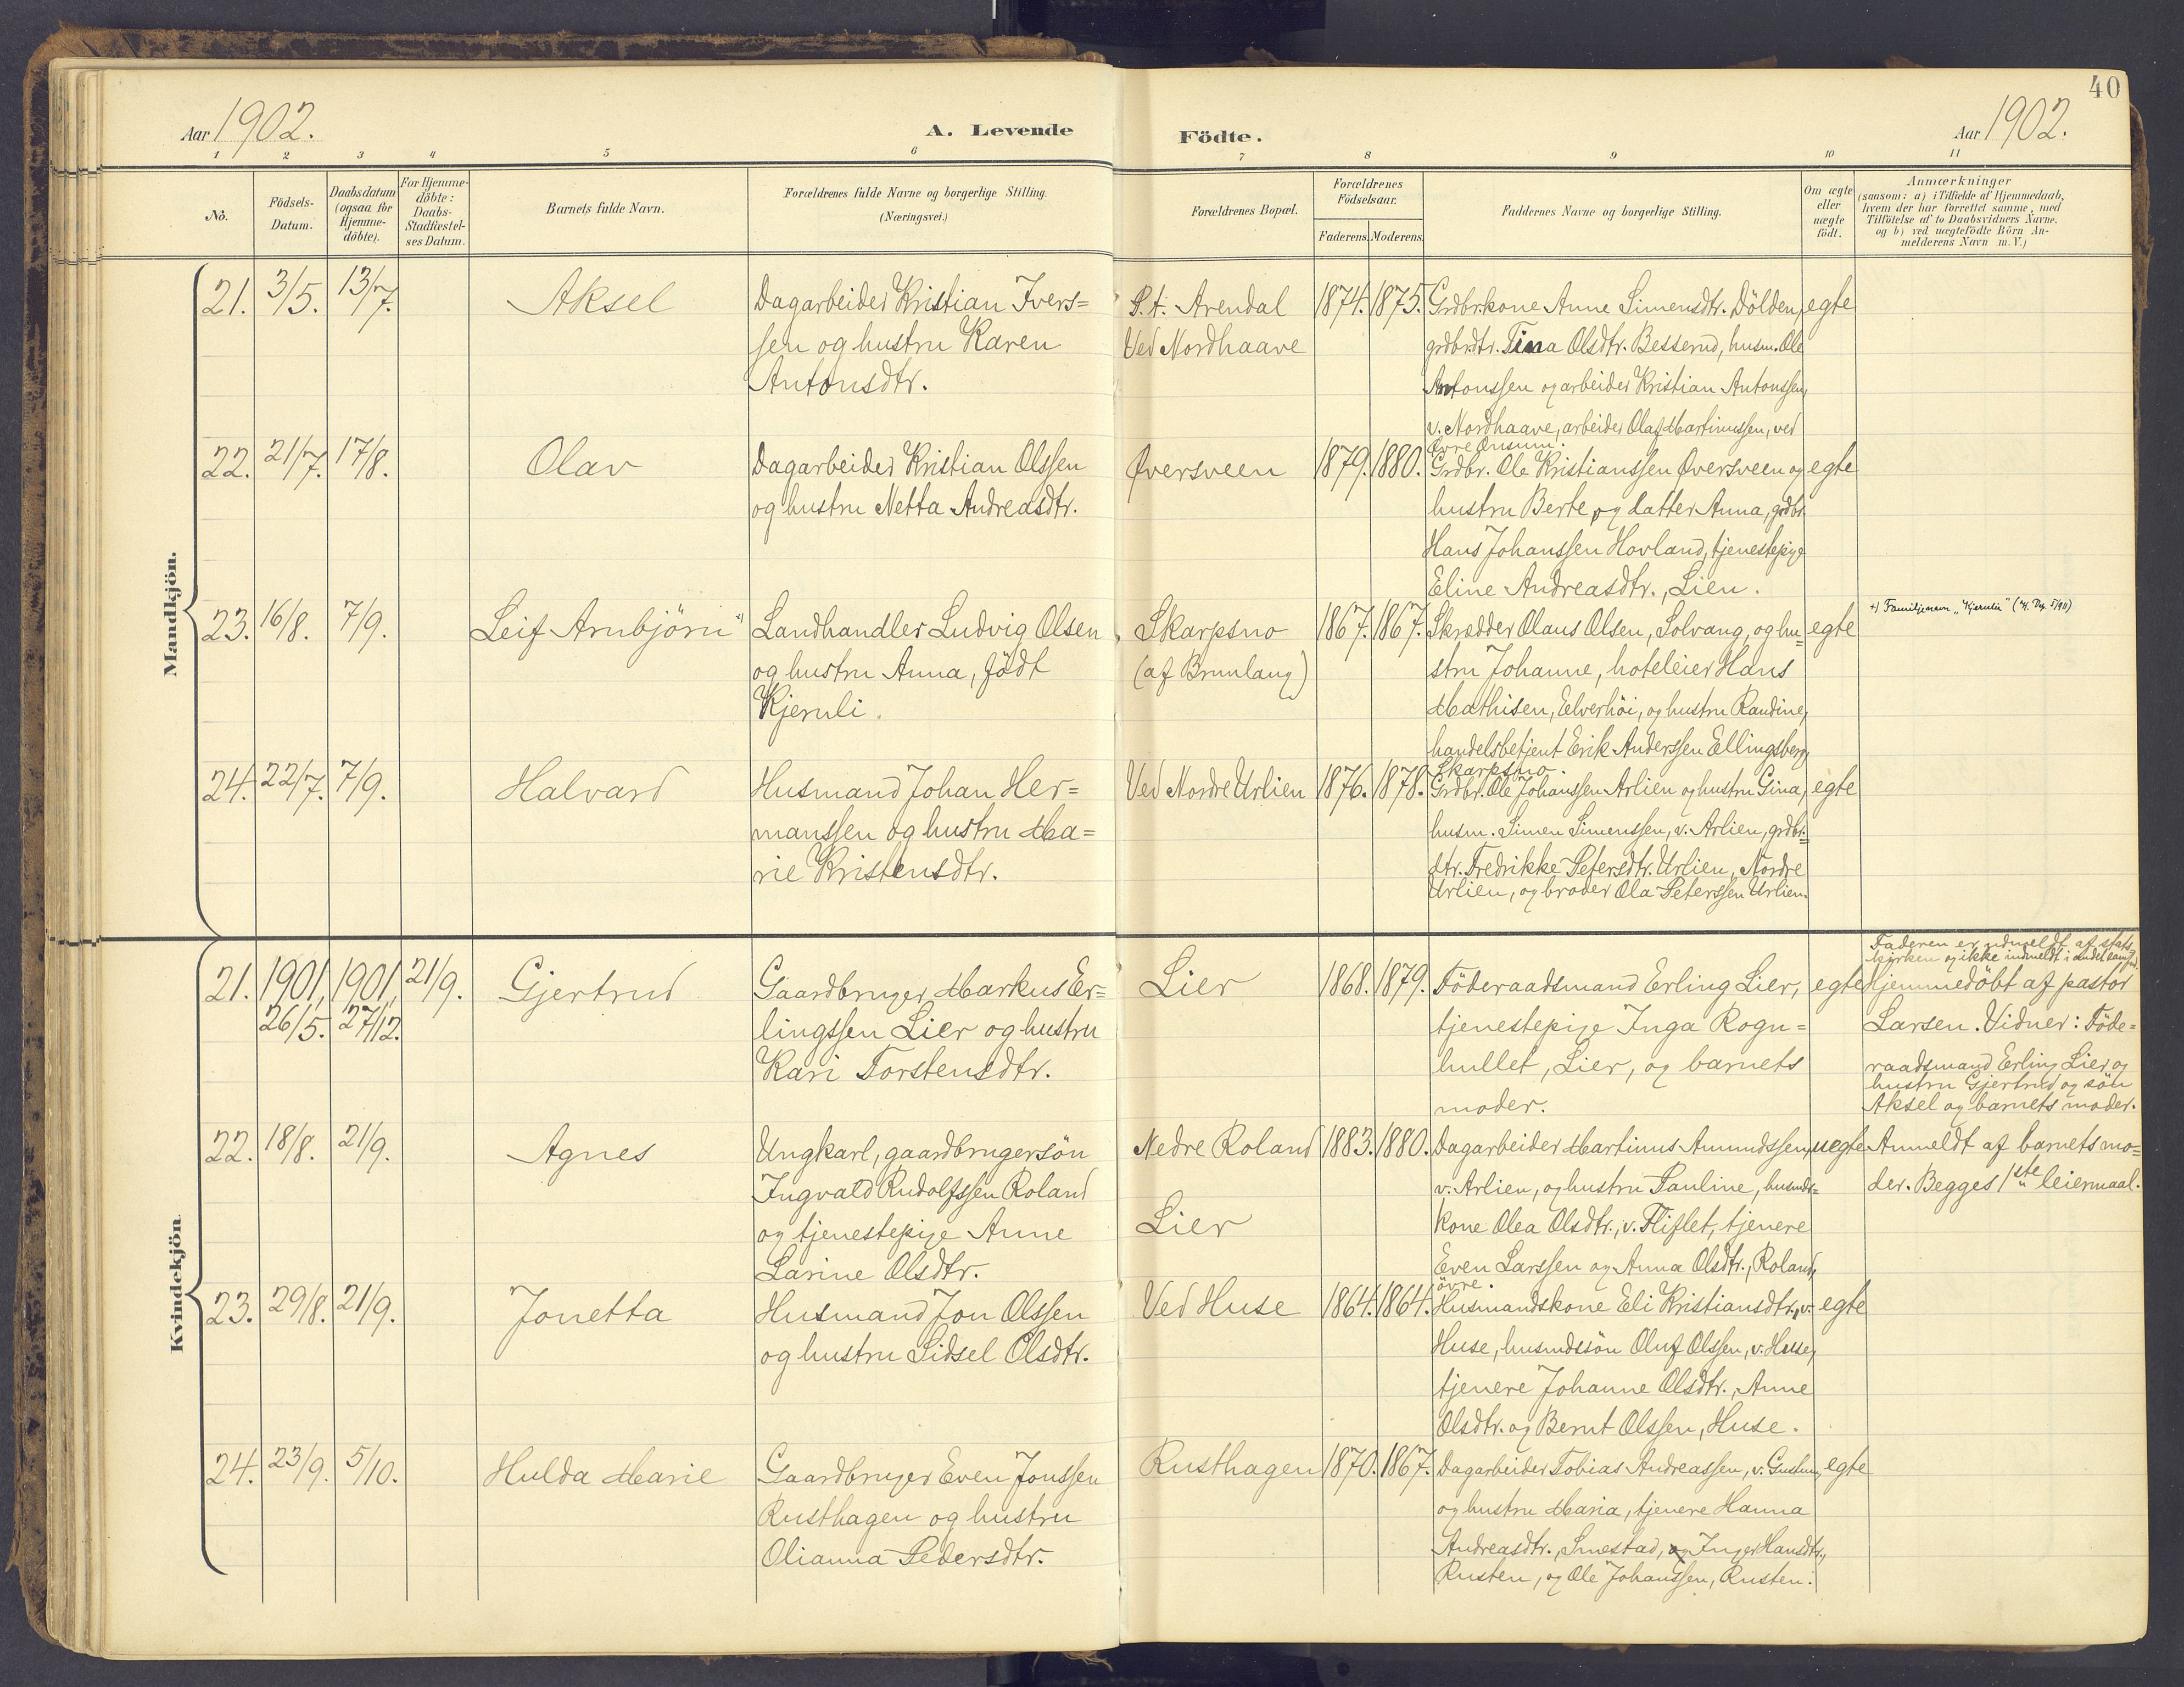 40
Aar 1902.
A. Levende Födte.
Aar 1902.
1 2 3 4 5 6 7 8 9 10 11
No.
Födsels-
Datum.
Daabsdatum
(ogsaa for
Hjemme-
döbte).
For Hjemme-
döbte:
Daabs-
Stadfæstel-
ses Datum.
Barnets fulde Navn.
Forældrenes fulde Navne og borgerlige Stilling.
(Næringsvei.)
Forældrenes Bopæl.
Forældrenes
Födselsaar.
Faderens. Moderens.
Faddernes Navne og borgerlige Stilling.
Om ægte
eller
uægte
födt.
Anmærkninger
(saasom: a) i Tilfælde af Hjemmedaab,
hvem der har forrettet samme, med
Tilföielse af to Daabsvidners Navne.
og b) ved uægtefödte Börn An-
melderens Navn m. V.)
Mandkjön.
21. 3/5. 13/7. Aksel
Dagarbeider Kristian Ivers=
sen og hustru Karen
Antonsdtr.
P.t. Arendal
Ved Nordhaave
1874. 1875.
Grdbr.kone Anne Simensdtr. Dölden,
grdbrdtr. Tina Olsdtr. Besserud, husm. Ole
Antonssen og arbeider Kristian Antonssen,
v. Nordhaave, arbeider Olaf Martinussen, ved
Øvre Onsum.
egte
22. 21/7. 17/8. Olav
Dagarbeider Kristian Olssen
og hustru Netta Andreasdtr.
Øversveen
1879. 1880.
Grdbr. Ole Kristianssen Øversveen og
hustru Berte og datter Anna, grdbr.
Hans Johanssen Hovland, tjenestepige
Eline Andreasdtr., Lien.
egte
23. 16/8. 7/9. Leif Arnbjörn
Landhandler Ludvig Olsen
og hustru Anna, födt
Kjeruli.
Skarpsno
(af Brunlang)
1867. 1867.
Skrædder Olaus Olsen, Solvang, og hu=
stru Johanne, hoteleier Hans
Mathisen, Elverhöi, og hustru Randine,
handelsbetjent Erik Anderssen Ellingsberg,
Skarpsno.
egte
+) Familjenavn "Kjerulu"
24. 22/7. 7/9. Halvard
Husmand Johan Her=
manssen og hustru Ma=
rie Kristensdtr.
Ved Nordre Urlien
1876. 1878.
Grdbr. Ole Johanssen Arlien og hustru Gina,
husm. Simen Simenssen, v. Arlien, grdbr.=
dtr. Fredrikke Petersdtr. Urlien, Nordre
Urlien, og broder Ola Peterssen Urlien.
egte
Kvindekjön.
21. 1901, 26/5. 1901, 27/12. 21/9. Gjertrud
Gaardbruger Markus Er=
lingssen Lier og hustru
Kari Torstensdtr.
Lier
1868. 1879.
Föderaadsmand Erling Lier,
tjenestepige Inga Rogn=
hullet, Lier, og barnets
moder.
egte
Faderen er udmeldt af stats=
kirken og ikke indmeldt i andet samfd.
Hjemmedöbt af pastor
Larsen. Vidner: Föde=
raadsmand Erling Lier og
hustru Gjertrud og sön
Aksel og barnets moder.
22. 18/8. 21/9. Agnes
Ungkarl, gaardbrugersön
Ingvald Rudolfssen Roland
og tjenestepige Anne
Larine Olsdtr.
Nedre Roland
Lier
1883. 1880.
Dagarbeider Martinus Amundssen,
v. Arlien, og hustru Pauline, husmds=
kone Olea Olsdtr., v. Fliflet, tjenere
Even Larssen og Anna Olsdtr., Roland,
övre.
uegte
Anmeldt af barnets mo=
der. Begges 1ste leiermaal.
23. 29/8. 21/9. Jonetta
Husmand Jon Olssen
og hustru Sidsel Olsdtr.
Ved Huse
1864. 1864.
Husmandskone Eli Kristiansdtr., v.
Huse, husmdssön Oluf Olssen, v. Huse,
tjenere Johanne Olsdtr., Anne
Olsdtr. og Bernt Olssen, Huse.
egte
24. 23/9. 5/10. Hulda Marie
Gaardbruger Even Jonssen
Rusthagen og hustru
Olianna Pedersdtr.
Rusthagen
1870. 1867.
Dagarbeider Tobias Andreassen, v. Gustum,
og hustru Maria, tjenere Hanna
Andreasdtr., Smestad, og Inger Hansdtr.,
Rusten, og Ole Johanssen, Rusten.
egte